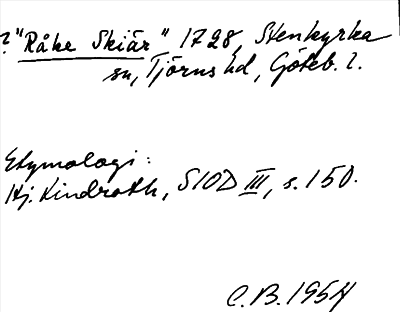 ? "Råke Skiär" 1728, Stenkyrka
sn, Tjörns hd, Göteb. l.
Etymologi:
Hj. Lindroth, SIOD III, s. 150.
C.B. 1954